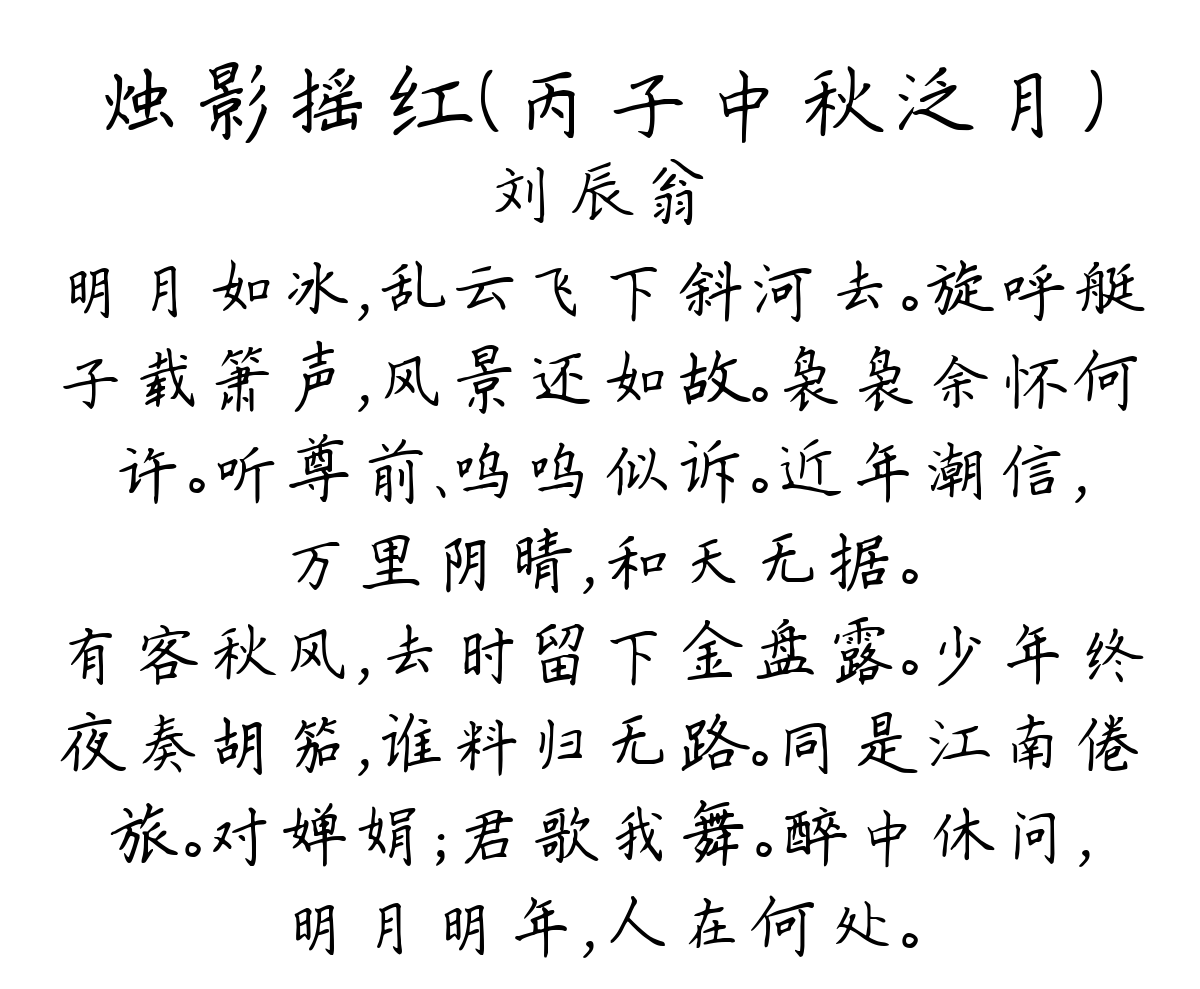 烛影摇红(丙子中秋泛月)
刘辰翁
明月如冰,乱云飞下斜河去。旋呼艇
子载箫声,风景还如故。袅袅余怀何
许。听尊前、呜呜似诉。近年潮信,
万里阴晴,和天无据。
有客秋风,去时留下金盘露。少年终
夜奏胡笳,谁料归无路。同是江南倦
旅。对婵娟;君歌我舞。醉中休问,
明月明年,人在何处。